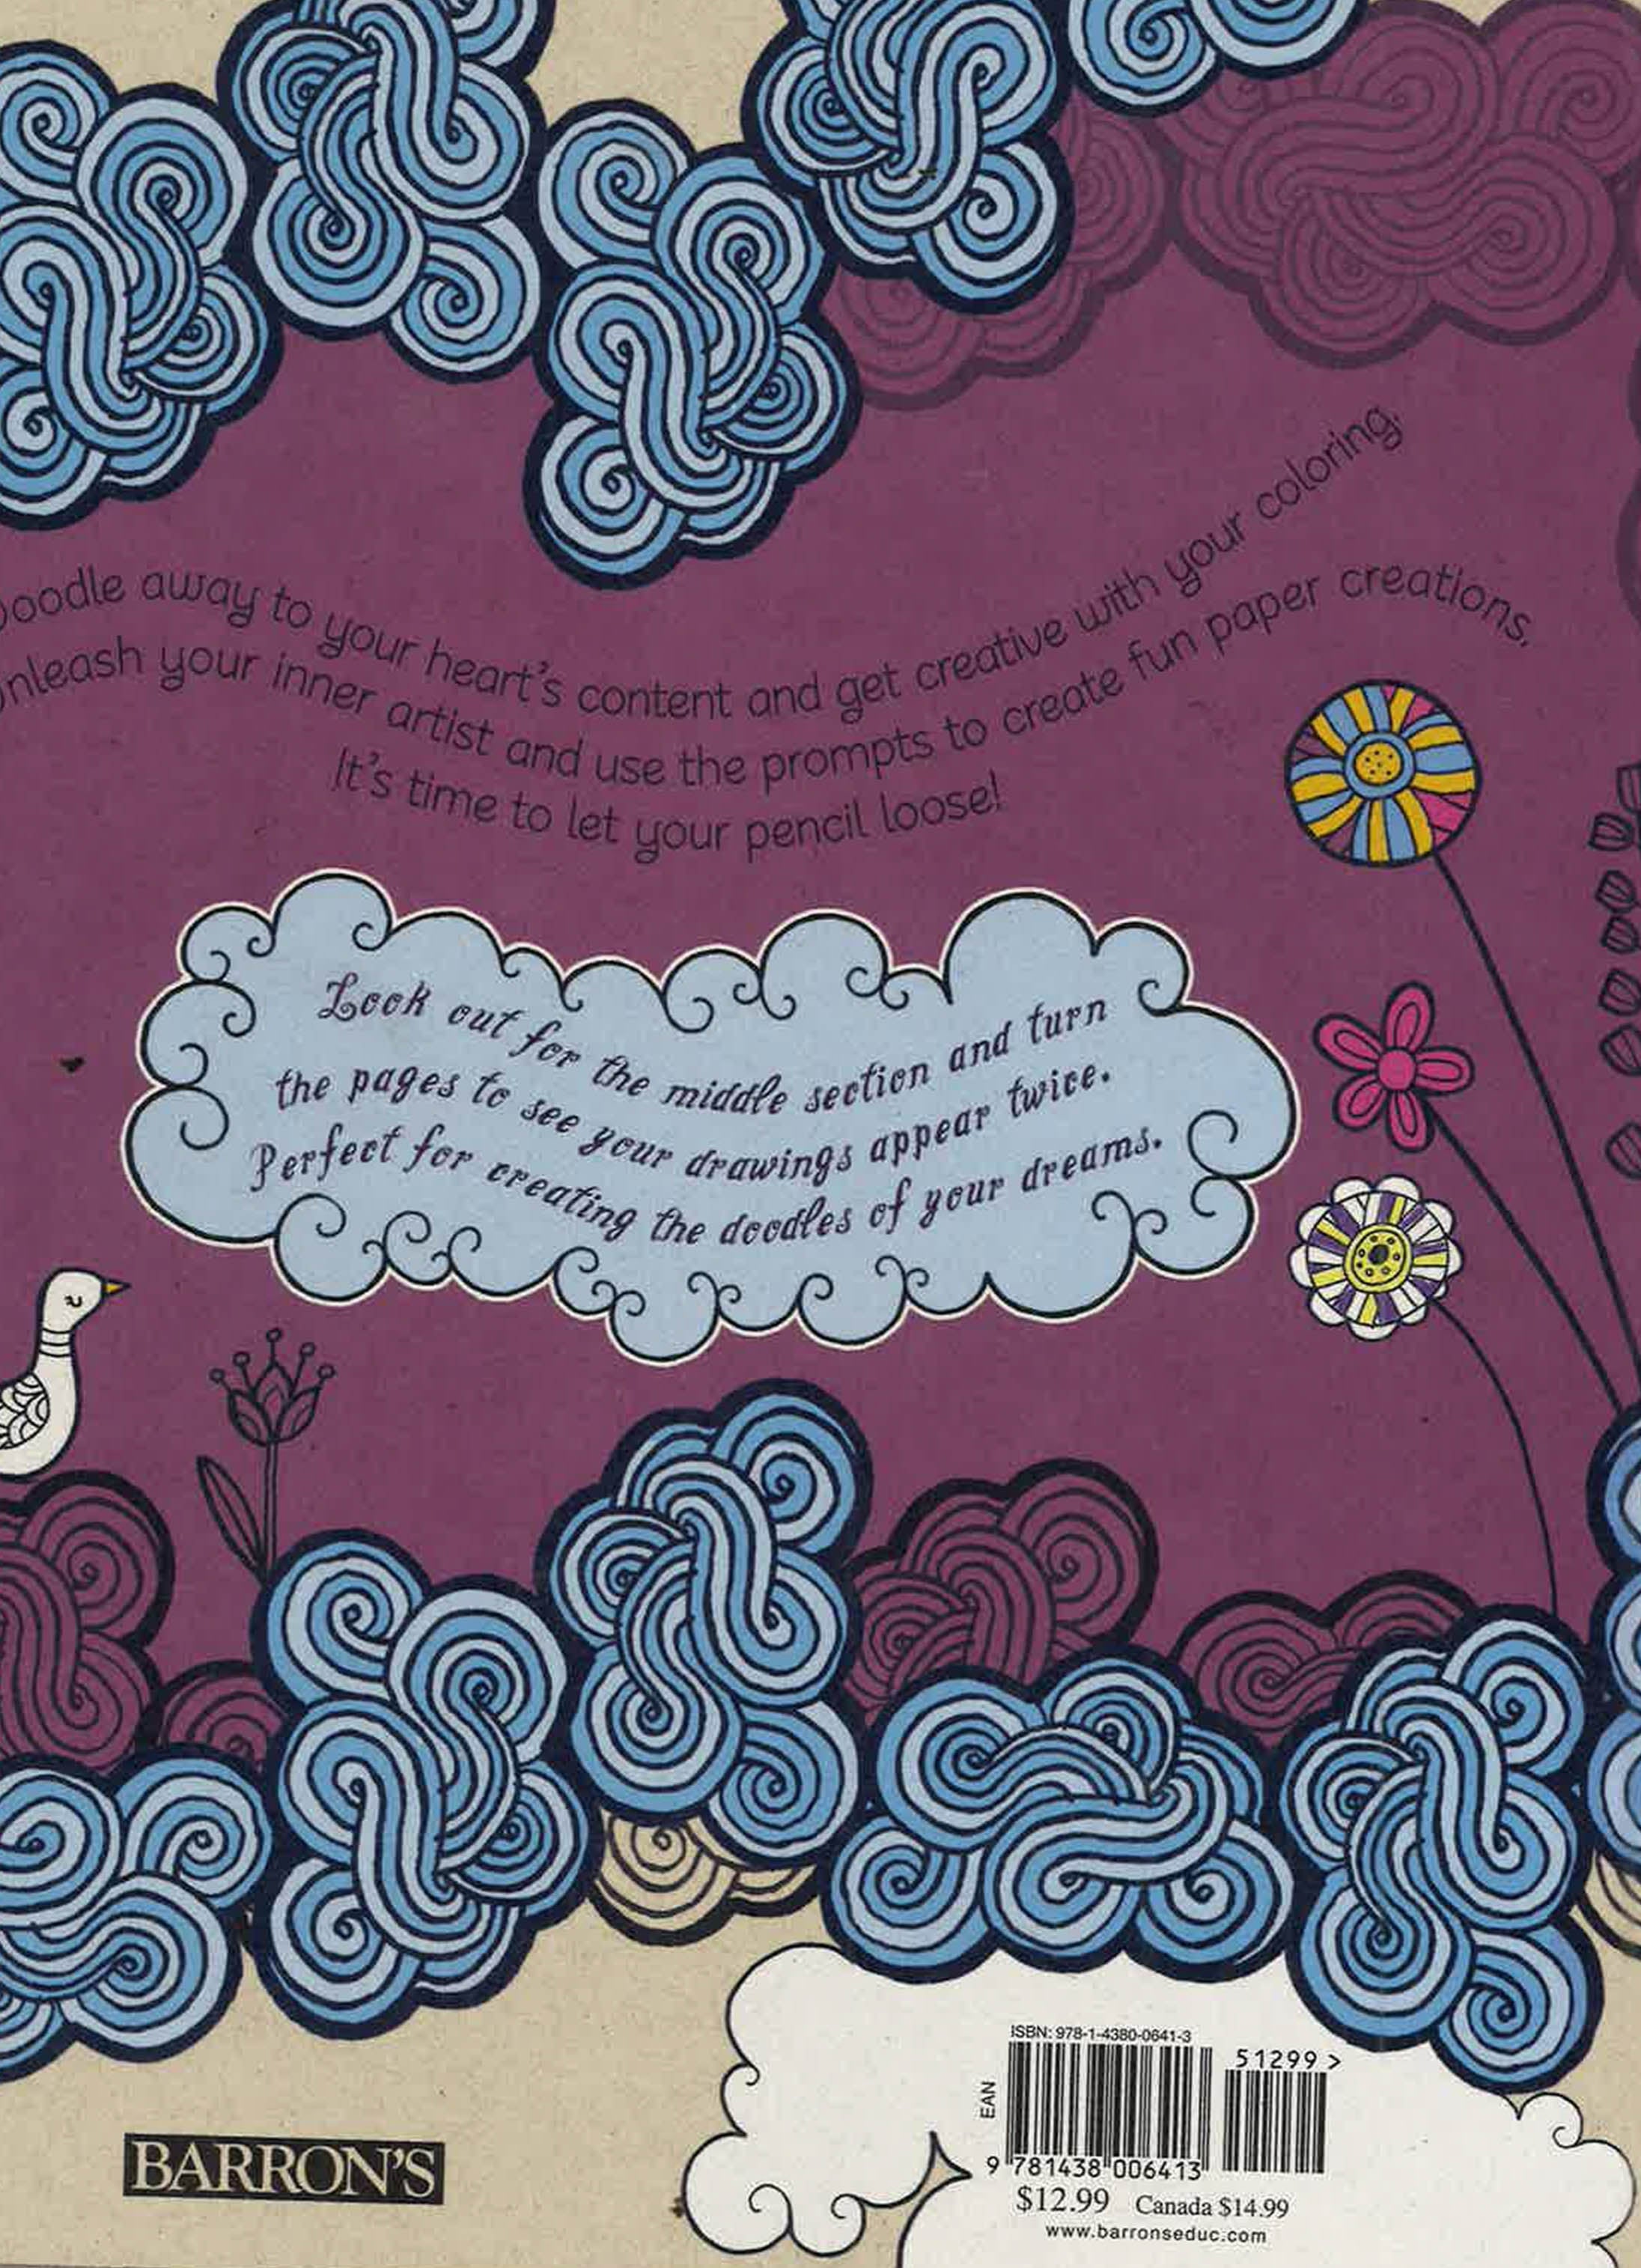 Doodle away to your heart's content and get creative with your coloring.
Unleash your inner artist and use the prompts to create fun paper creations.
It's time to let your pencil loose!
Look out for the middle section and turn
the pages to see your drawings appear twice.
Perfect for creating the doodles of your dreams.
BARRON'S
ISBN: 978-1-4380-0641-3
51299 >
EAN
9 781438 006413
$12.99 Canada $14.99
www.barronseduc.com